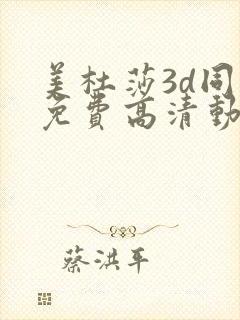 美杜莎3d同
免费高清动
蔡洪平